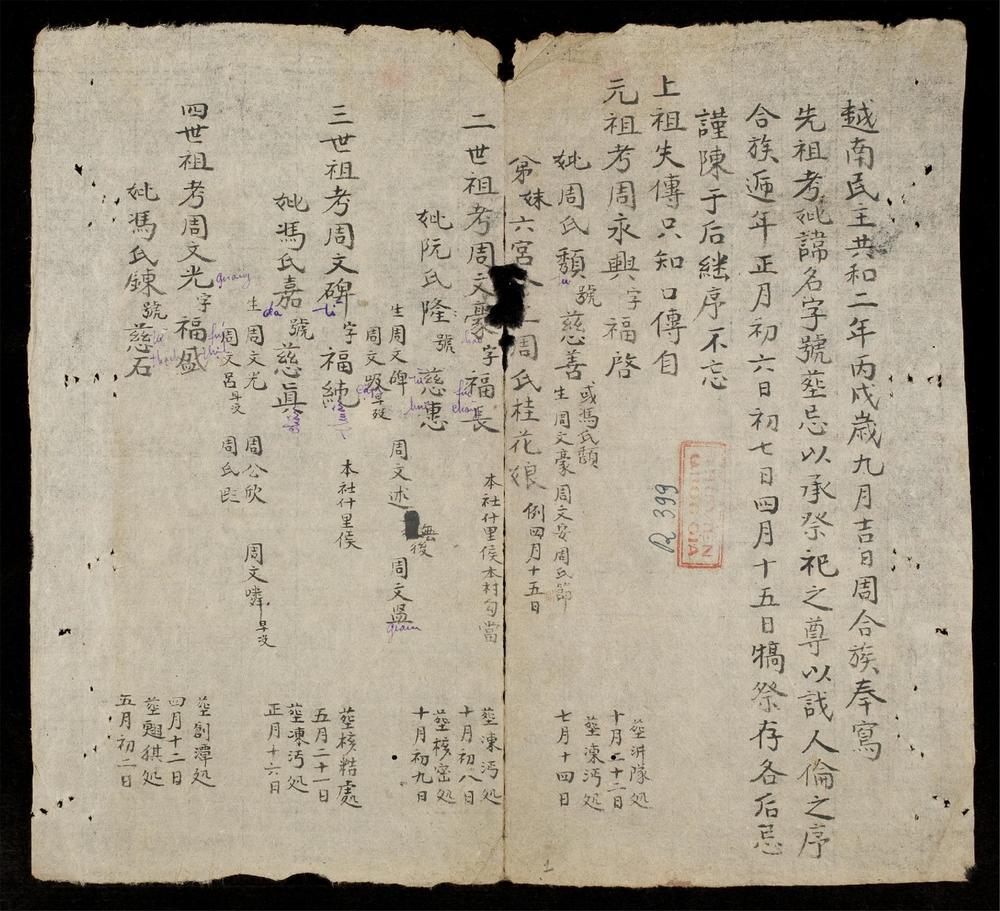 越南民主共和二年丙戌歲九月吉日周合族奉寫
先祖考妣諱名字號塟忌以承祭祀之尊以識人倫之序
合族遞年正月初六日初七日四月十五日犒祭存各后忌
謹陳于后継序不忘
上祖失傳只知口傳自
元祖考周永興字福啓
塟洴隊処
十月二十二日
妣周氏䫋號慈善
或馮氏䫋
生周文豪周文安周氏節
塟凍沔処
七月十四日
弟妹六宮
周氏桂花娘
例四月十五日
二世祖考周文豪字福長
本社什里侯本村勾當
塟凍沔処
十月初八日
妣阮氏隆號慈惠
塟核密処
十月初九日
生周文碑
周文述
無後
周文
周文
早歿
三世祖考周文碑字福純
本社什里侯
塟核精處
五月二十一日
妣馮氏嘉號慈眞
塟凍沔処
正月十六日
生周文光
周公欣
周文
早沒
周文呂早沒
周氏
四世祖考周文光字福盛
塟割潭処
四月十二日
妣馮氏鍊號慈石
塟翹猉処
五月初二日
quang
gia
R 399
1